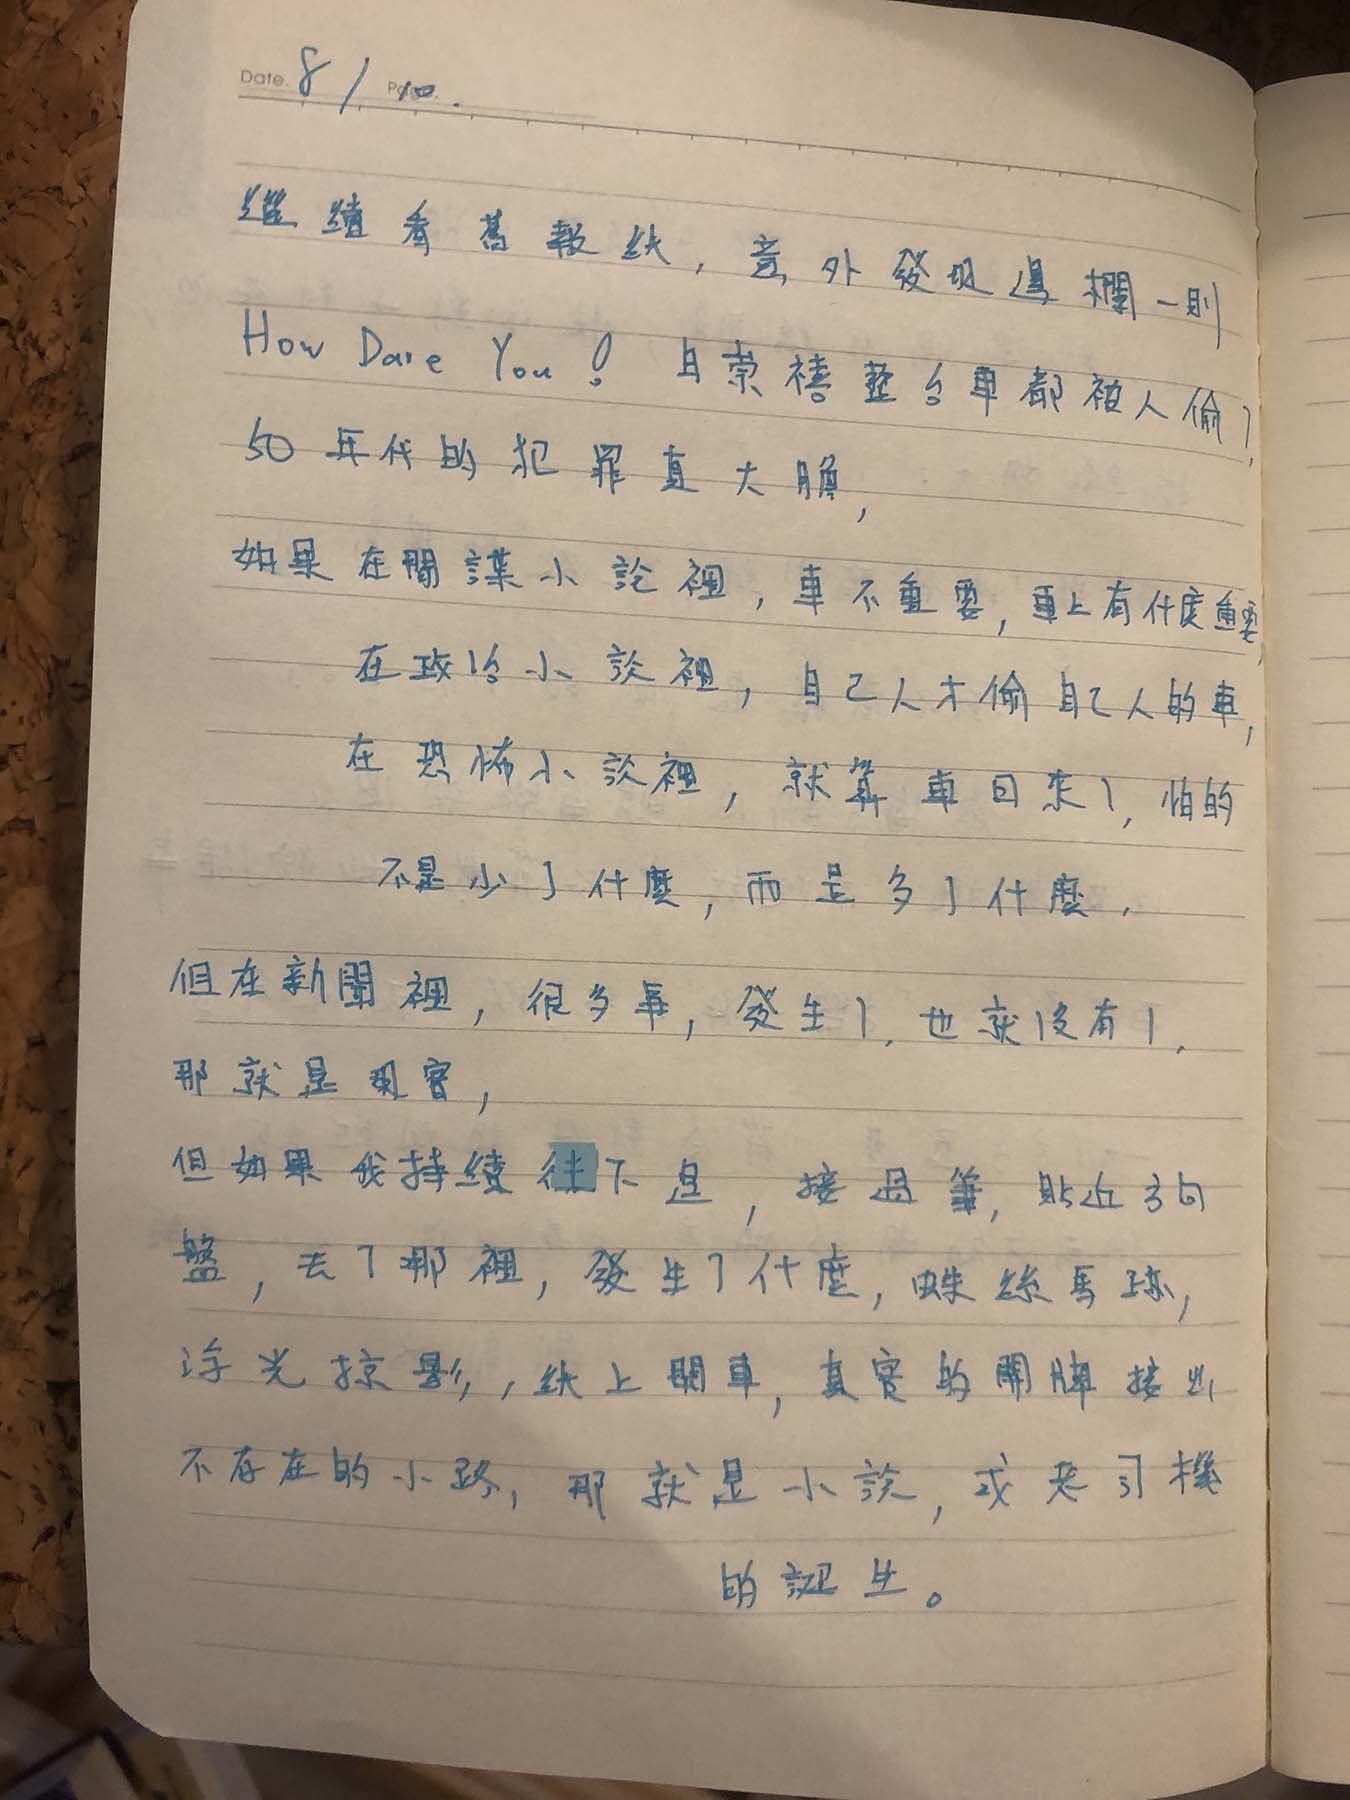 Date. 8 / 10.
繼續看舊報紙，意外發現邊欄一則
How Dare You! 白崇禧整台車都被人偷了，
50年代的犯罪真大膽，
如果在間諜小說裡，車不重要，車上有什麼重要，
在政治小說裡，自己人才偷自己人的車，
在恐怖小說裡，就算車回來了，怕的
不是少了什麼，而是多了什麼，
但在新聞裡，很多事，發生了，也就沒有了，
那就是現實，
但如果我持續往下追，接過筆，貼近方向
盤，去了哪裡，發生了什麼，蛛絲馬跡，
浮光掠影，紙上開車，真實的關牌接出
不存在的小路，那就是小說，或老司機
的誕生。